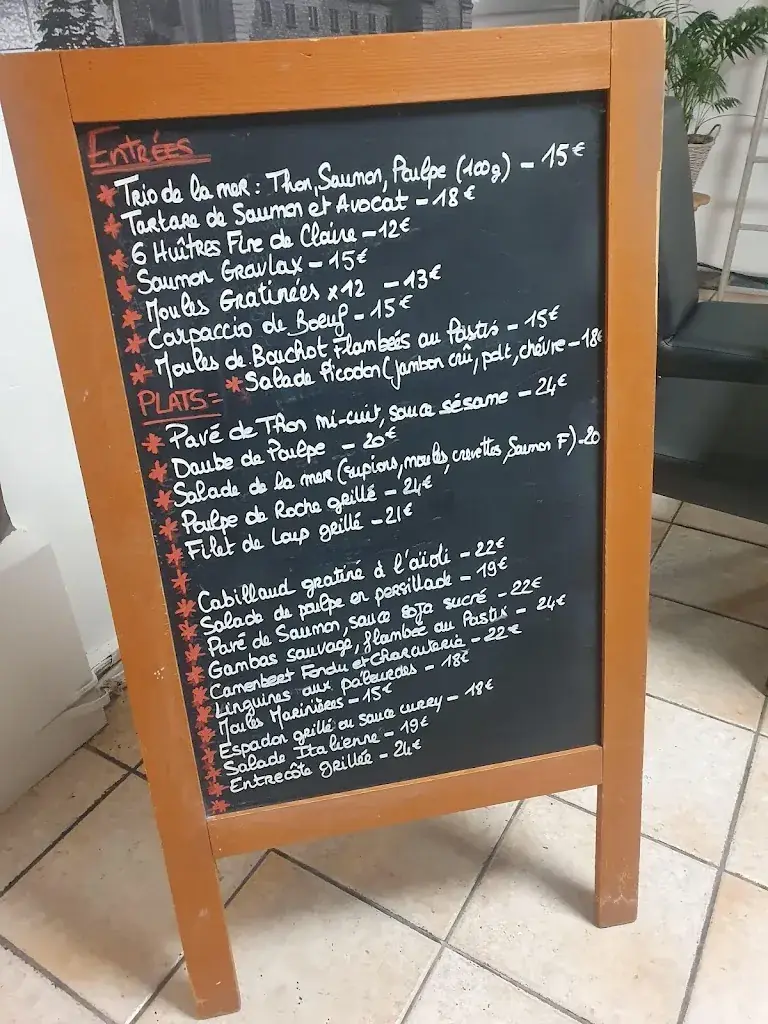 Entrées
* Trio de la mer : Thon, Saumon, Poulpe (100g) - 15€
* Tartare de Saumon et Avocat - 18€
* 6 Huîtres Fine de Claire - 12€
* Saumon Gravlax - 15€
* Moules Gratinées x12 - 13€
* Carpaccio de Boeuf - 15€
* Moules de Bouchot Flambées au Pastis - 15€
* Salade Picodon (jambon crû, pdt, chévre - 18€
PLATS =
* Pavé de Thon mi-cuit, sauce sésame - 24€
* Daube de Poulpe - 20€
* Salade de la mer (supions, moules, crevettes, Saumon F) - 20
* Poulpe de Roche grillé - 24€
* Filet de Loup grillé - 21€
*
* Cabillaud gratiné à l'aïoli - 22€
* Salade de poulpe en persillade - 19€
* Pavé de Saumon, sauce soja sucré - 22€
* Gambas sauvage, flambée au Pastis - 24€
* Camenbert Fondu et charcuterie - 22€
* Linguines aux palourdes - 18€
* Moules Marinières - 15€
* Espadon grillé ou sauce curry - 18€
* Salade Italienne - 19€
* Entrecôte grillée - 24€